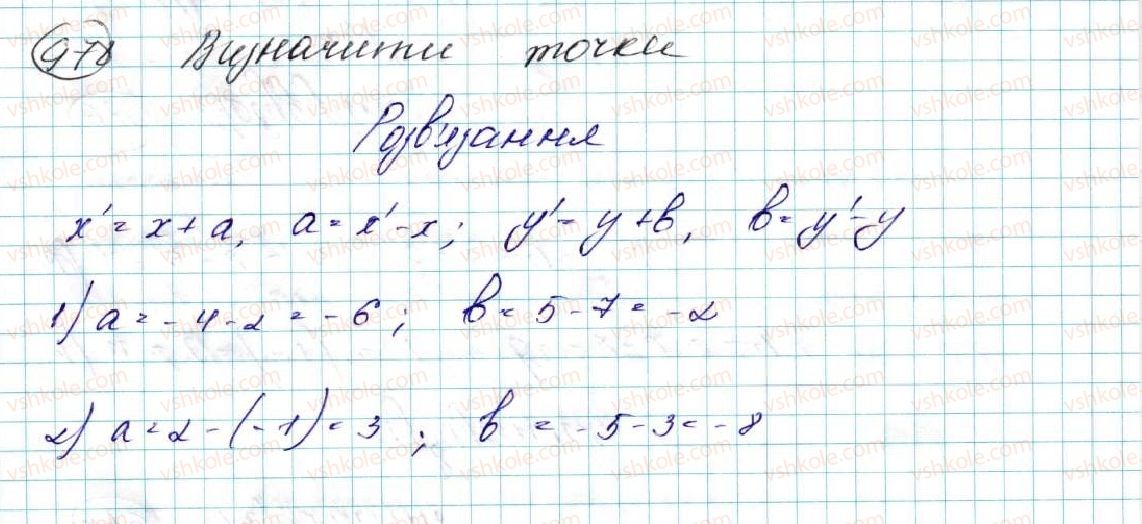 978 Визначити точки
Розв'язання
x' = x + a, a = x' - x; y' = y + b, b = y' - y
1) a = -4 - 2 = -6; b = 5 - 7 = -2
2) a = 2 - (-1) = 3; b = -5 - 3 = -8